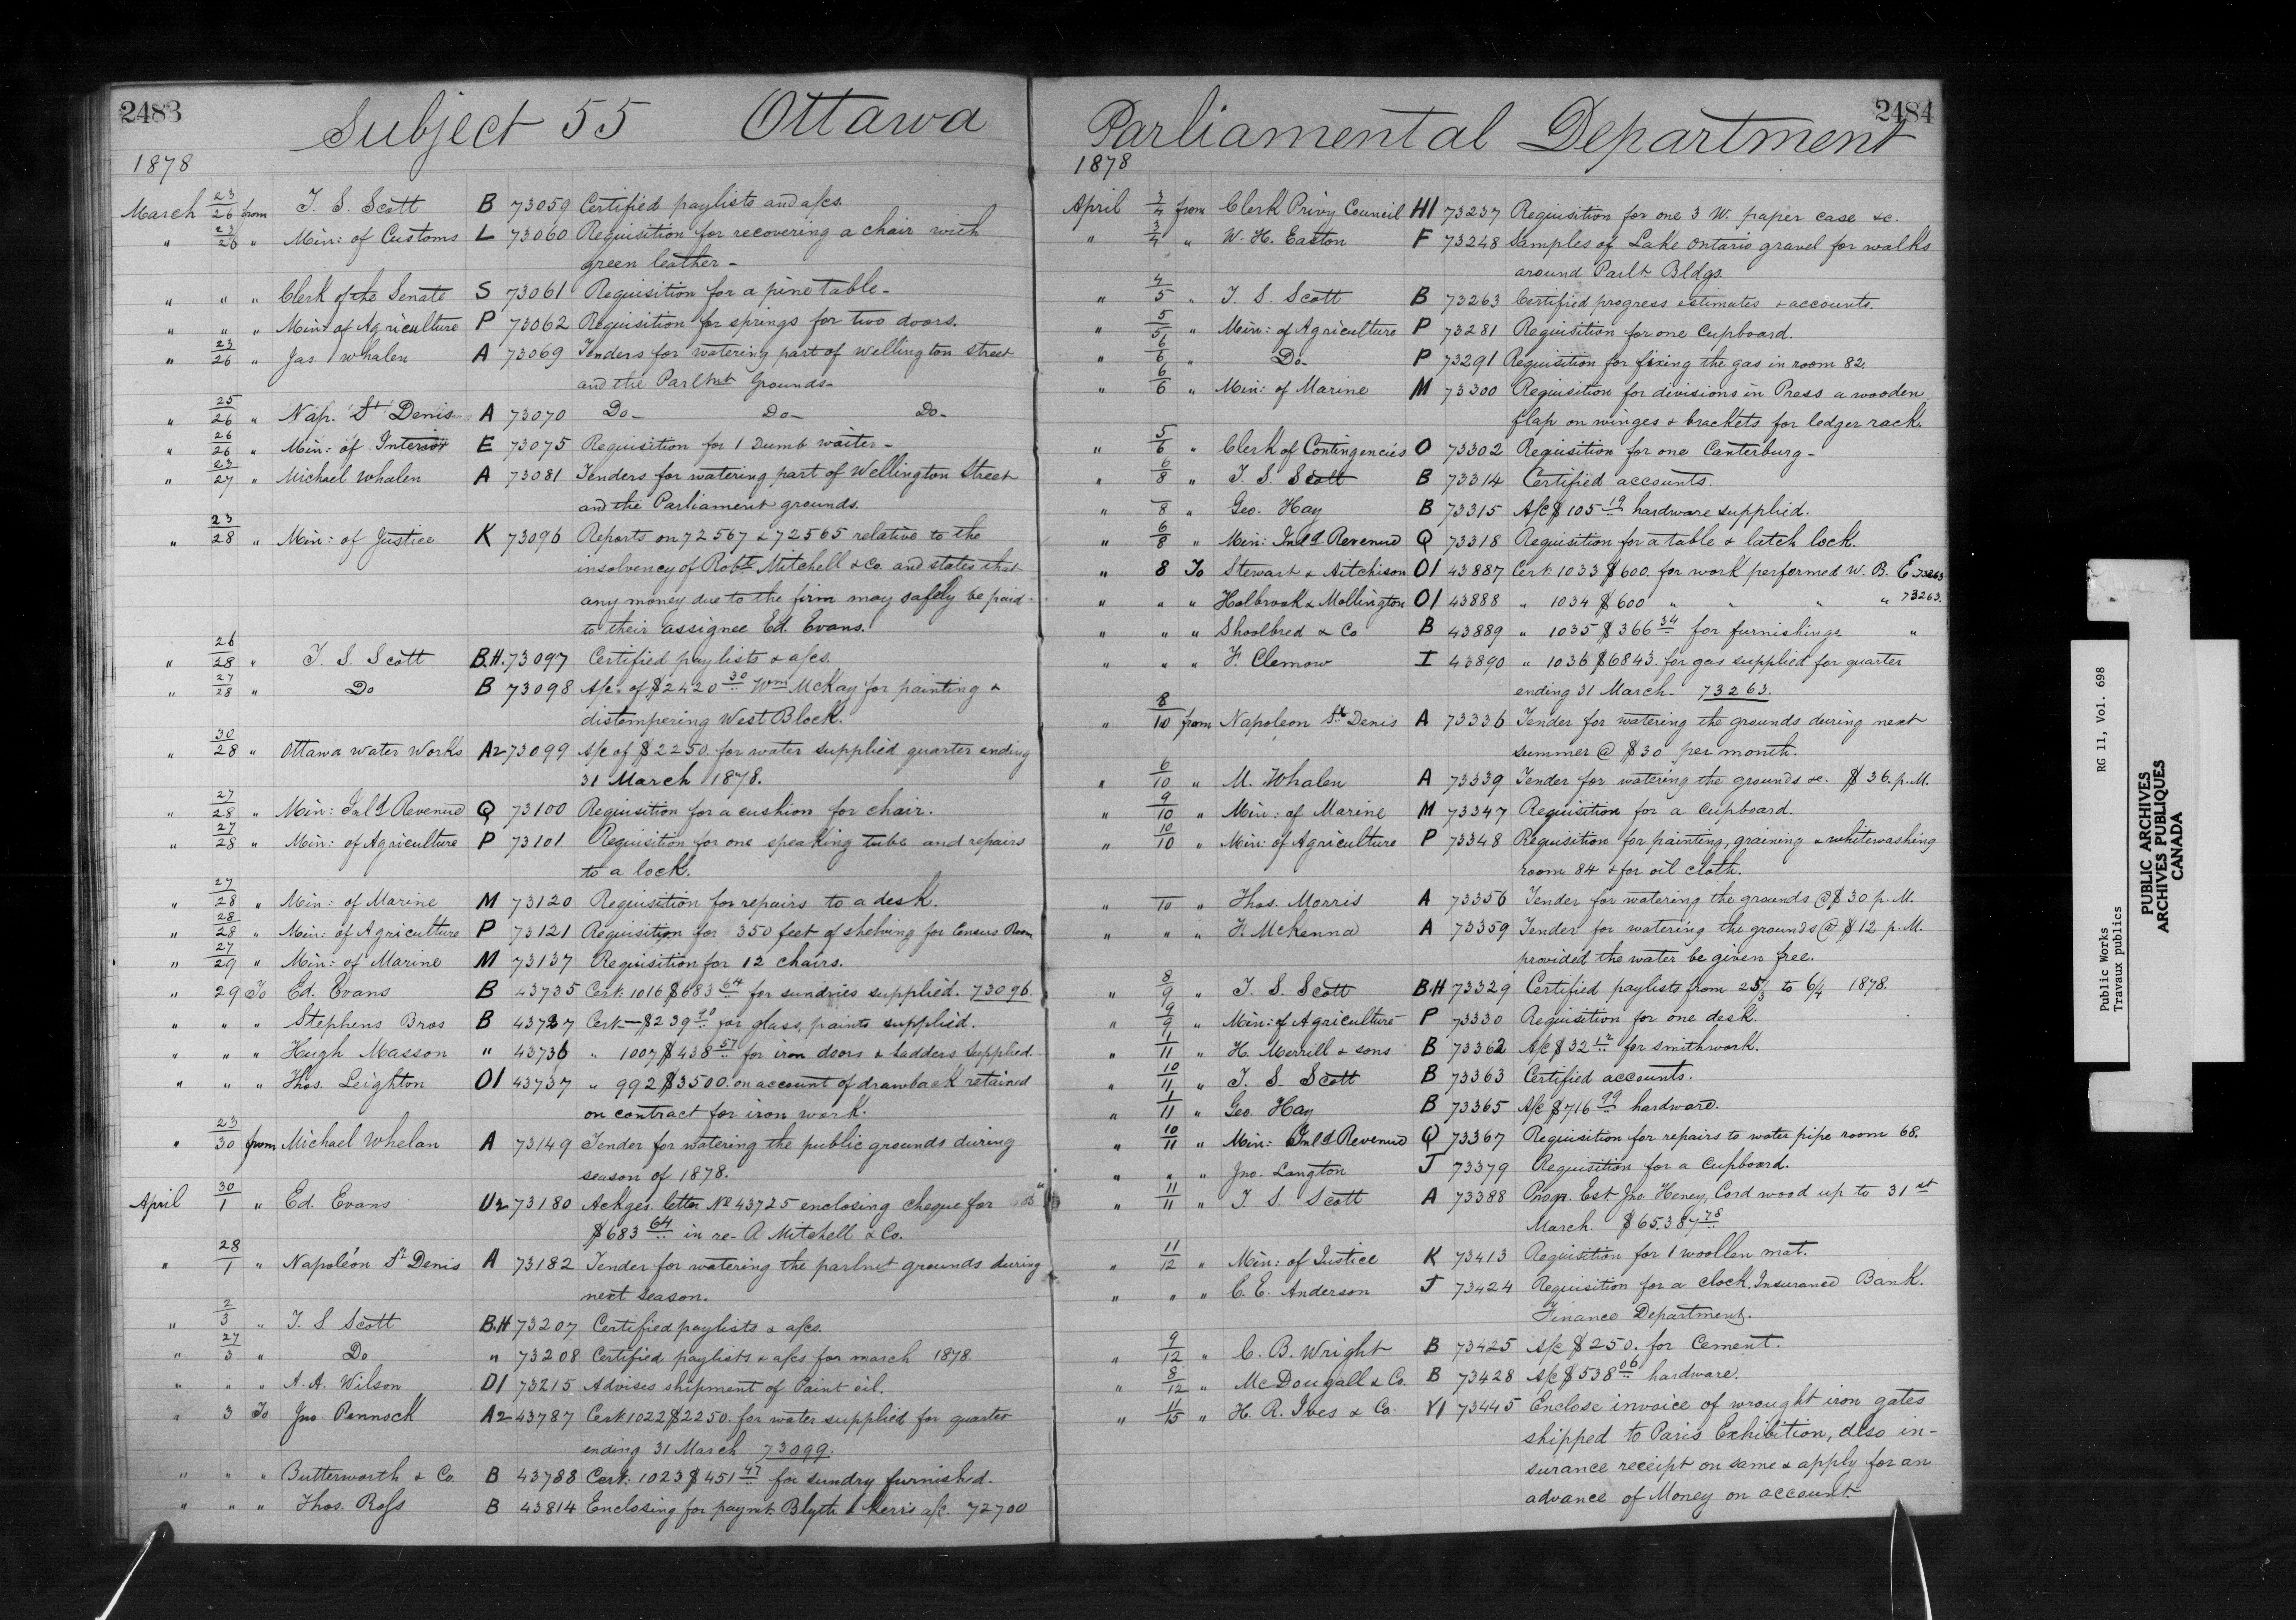 2483
Subject 55 Ottawa
1878
March 23/26 from T. S. Scott B 73059 Certified paylists and a/cs.
" 23/26 " Min: of Customs L 73060 Requisition for recovering a chair with
green leather -
" " " Clerk of the Senate S 73061 Requisition for a pine table -
" " " Min: of Agriculture P 73062 Requisition for springs for two doors.
" 23/26 " Jas. Whalen A 73069 Tenders for watering part of Wellington Street
and the Parlmt Grounds -
" 25/26 " Nap. St Denis A 73070 Do - Do - Do -
" 26/26 " Min: of Interior E 73075 Requisition for 1 Dumb waiter -
" 23/27 " Michael Whalen A 73081 Tenders for watering part of Wellington Street
and the Parliament grounds.
" 23/28 " Min: of Justice K 73096 Reports on 72567 & 72565 relative to the
insolvency of Robt Mitchell & Co. and states that
any money due to the firm may safely be paid -
to their assignee Ed. Evans.
" 26/28 " T. S. Scott B.H. 73097 Certified paylists & a/cs.
" 27/28 " Do B 73098 A/c. of $2420 30 Wm McKay for painting &
distempering West Block.
" 30/28 " Ottawa Water Works A2 73099 A/c of $2250. for water supplied quarter ending
31 March 1878.
" 27/28 " Min: Inld Revenue Q 73100 Requisition for a cushion for chair.
" 27/28 " Min: of Agriculture P 73101 Requisition for one speaking tube and repairs
to a lock.
" 27/28 " Min: of Marine M 73120 Requisition for repairs to a desk.
" 28/28 " Min: of Agriculture P 73121 Requisition for 350 feet of shelving for Census Room
" 27/29 " Min: of Marine M 73137 Requisition for 12 chairs.
" 29 To Ed. Evans B 43735 Cert: 1016 $683 64 for sundries supplied. 73096.
" " " Stephens Bros B 43727 Cert - $239 90 for glass, paints supplied.
" " " Hugh Masson " 43736 " 1007 $438 57 for iron doors & Ladders supplied.
" " " Thos. Leighton O1 43737 " 992 $3500. on account of drawback retained
on contract for iron work.
" 23/30 from Michael Whelan A 73149 Tender for watering the public grounds during
season of 1878.
April 30/1 " Ed. Evans U2 73180 Ackges. letter No 43725 enclosing cheque for
$683 64 in re - R Mitchell & Co.
" 28/1 " Napoléon St Denis A 73182 Tender for watering the parlmet grounds during
next season.
" 2/3 " T. S Scott B.H 73207 Certified paylists & a/cs.
" 27/3 " Do " 73208 Certified paylists & a/cs for march 1878.
" " " A. A. Wilson D1 73215 Advises shipment of Paint oil.
" 3 To Jno. Pennock A2 43787 Cert: 1022 $2250. for water supplied for quarter
ending 31 March 73099.
" " " Butterworth & Co. B 43788 Cert: 1023 $451 47 for sundry furnished.
" " " Thos. Ross B 43814 Enclosing for paymt. Blyth & Kerr's a/c. 72700
2484
Parliamental Department
1878
April 3/4 from Clerk Privy Council H1 73237 Requisition for one 3 W. paper case &c.
" 3/4 " W. H. Easton F 73248 Samples of Lake Ontario gravel for walks
around Parlt Bldgs.
" 4/5 " T. S. Scott B 73263 Certified progress estimates & accounts.
" 5/5 " Min: of Agriculture P 73281 Requisition for one Cupboard.
" 6/6 " Do - P 73291 Requisition for fixing the gas in room 82.
" 6/6 " Min: of Marine M 73300 Requisition for divisions in Press a wooden
flap on winges & brackets for ledger rack.
" 5/6 " Clerk of Contingencies O 73302 Requisition for one Canterburg -
" 6/8 " T. S. Scott B 73314 Certified accounts.
" 8 " Geo. Hay B 73315 A/c $105 19 hardware supplied.
" 6/8 " Min: Inld Revenue Q 73318 Requisition for a table & latch lock.
" 8 To Stewart & Aitchison O1 43887 Cert: 1033 $600. for work performed W. B. E 73263
" " " Holbrook & Mollington O1 43888 " 1034 $600 " " " " 73263.
" " " Shoolbred & Co B 43889 " 1035 $366 34 for furnishings "
" " " F. Clemow I 43890 " 1036 $6843. for gas supplied for quarter
ending 31 March - 73263.
" 8/10 from Napoleon St. Denis A 73336 Tender for watering the grounds during next
summer @ $30 per month.
" 6/10 " M. Whalen A 73339 Tender for watering the grounds &c. $36. p. M.
" 9/10 " Min: of Marine M 73347 Requisition for a Cupboard.
" 10/10 " Min: of Agriculture P 73348 Requisition for painting, graining & whitewashing
room 84 & for oil cloth.
" 10 " Thos. Morris A 73356 Tender for watering the grounds @ $30 p. M.
" " " F. McKenna A 73359 Tender for watering the grounds @ $12 p. M.
provided the water be given free.
" 8/9 " T. S. Scott B.H 73329 Certified paylists from 25/3 to 6/4 1878.
" 9/9 " Min: of Agriculture P 73330 Requisition for one desk.
" 1/11 " H. Merrill & sons B 73362 A/c $32 12 for smithwork.
" 10/11 " T. S. Scott B 73363 Certified accounts.
" 1/11 " Geo. Hay B 73365 A/c $716 99 hardware.
" 10/11 " Min: Inld Revenue Q 73367 Requisition for repairs to water pipe room 68.
" " " Jno. Langton J 73379 Requisition for a Cupboard.
" 11/11 " T. S. Scott A 73388 Progr. Est Jno. Heney, Cord wood up to 31st
March. $65.387 78
" 11/12 " Min: of Justice K 73413 Requisition for 1 woollen mat.
" " " C. E. Anderson J 73424 Requisition for a clock, Insurance Bank.
Finance Department.
" 9/12 " C. B. Wright B 73425 A/c $250. for Cement.
" 8/12 " McDougall & Co. B 73428 A/c $538 06 hardware.
" 11/15 " H. R. Ives & Co. Y1 73445 Enclose invoice of wrought iron gates
shipped to Paris Exhibition, also in-
surance receipt on same & apply for an
advance of Money on account.
Public Works RG 11, Vol. 698
Travaux publics
PUBLIC ARCHIVES
ARCHIVES PUBLIQUES
CANADA